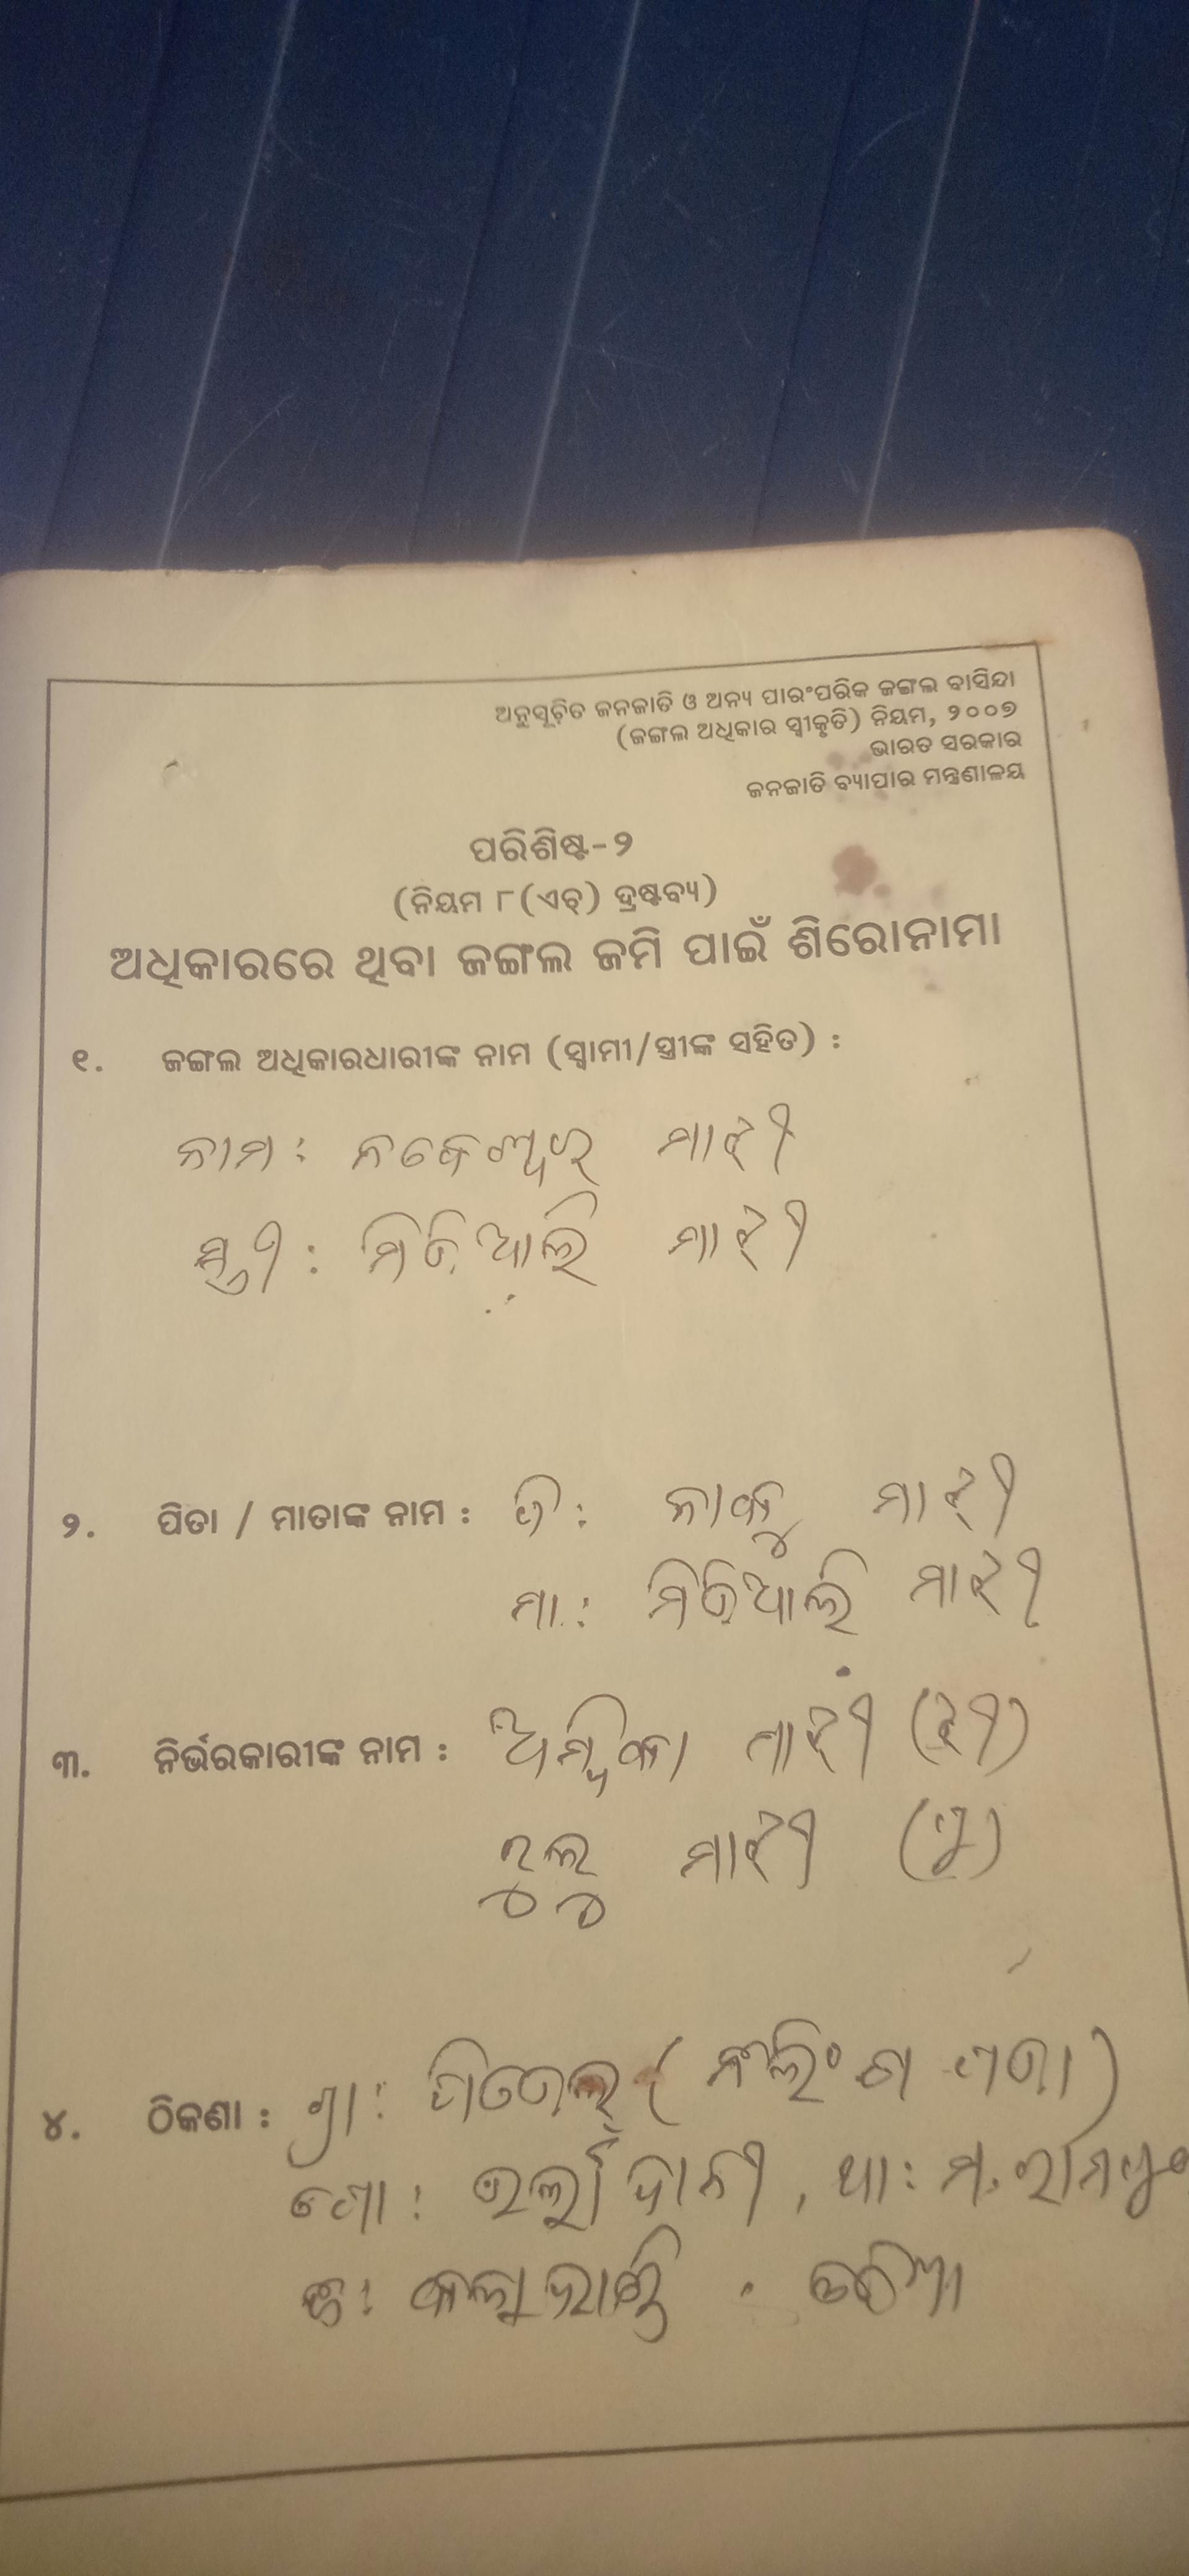 ଅନୁସୂଚିତ ଜନଜାତି ଓ ଅନ୍ୟ ପାରଂପରିକ ଜଙ୍ଗଲ ବାସିନ୍ଦା
(ଜଙ୍ଗଲ ଅଧିକାର ସ୍ୱୀକୃତି) ନିୟମ, ୨୦୦୭
ଭାରତ ସରକାର
ଜନଜାତି ବ୍ୟାପାର ମନ୍ତ୍ରଣାଳୟ
ପରିଶିଷ୍ଟ-୨
(ନିୟମ ୮(ଏଚ୍) ଦ୍ରଷ୍ଟବ୍ୟ)
ଅଧିକାରରେ ଥିବା ଜଙ୍ଗଲ ଜମି ପାଇଁ ଶିରୋନାମା
୧. ଜଙ୍ଗଲ ଅଧିକାରଧାରୀଙ୍କ ନାମ (ସ୍ୱାମୀ/ସ୍ତ୍ରୀଙ୍କ ସହିତ) :
ନାମ: ମାଝୀ
ସ୍ତ୍ରୀ: ମାଝୀ
୨. ପିତା / ମାତାଙ୍କ ନାମ : ପି: ମାଝୀ
ମା: ମାଝୀ
୩. ନିର୍ଭରକାରୀଙ୍କ ନାମ : ଅମ୍ବିକା ମାଝୀ (ଝୀ)
ମାଝୀ (ପୁ)
୪. ଠିକଣା : ଗ୍ରା:
ପୋ: ଥା: ମ. ରାମପୁର
ଜି: କଳାହାଣ୍ଡି . ଓଡିଶା